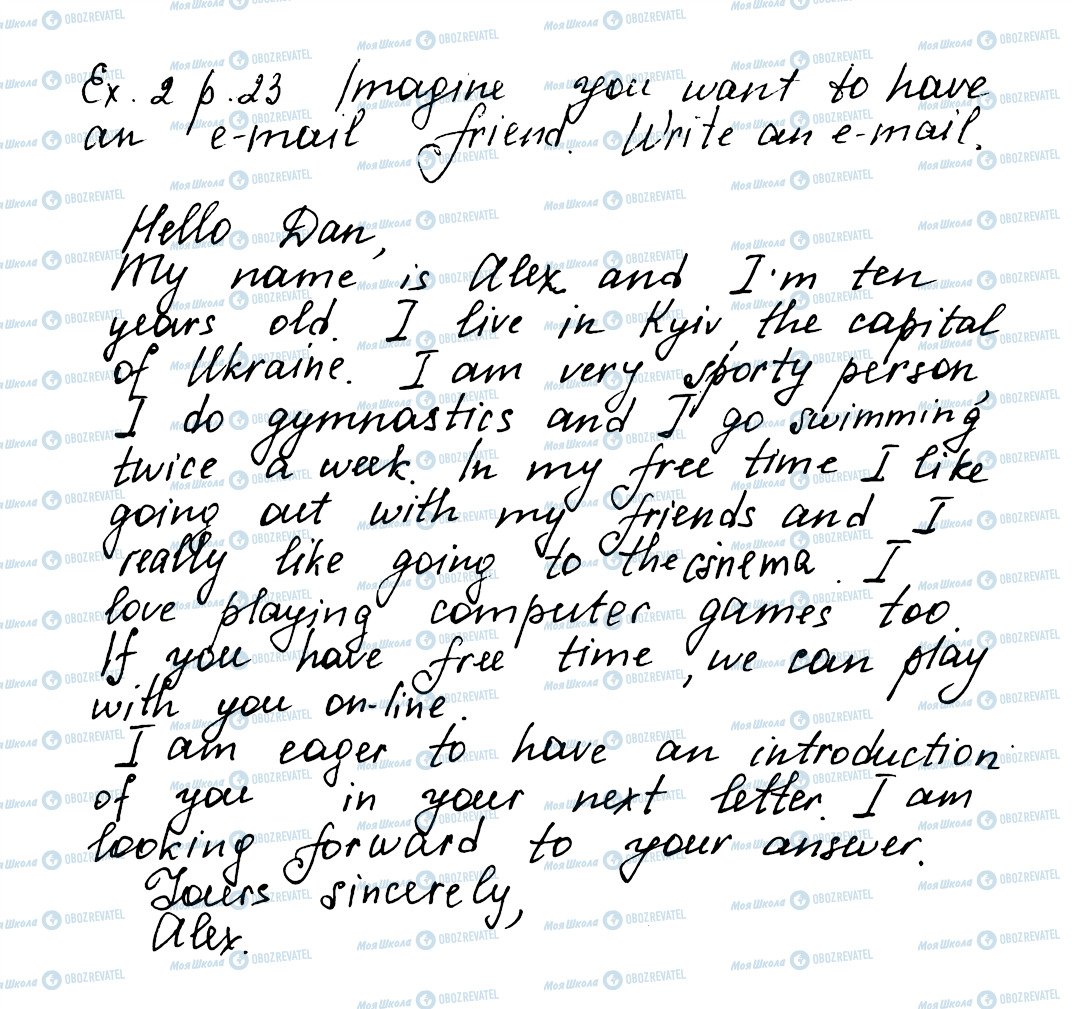 Ex. 2 p. 23 Imagine you want to have
an e-mail friend. Write an e-mail.
Hello Dan,
My name is Alex and I'm ten
years old. I live in Kyiv, the capital
of Ukraine. I am very sporty person,
I do gymnastics and I go swimming
twice a week. In my free time I like
going out with my friends and I
really like going to the cinema. I
love playing computer games too.
If you have free time, we can play
with you on-line.
I am eager to have an introduction
of you in your next letter. I am
looking forward to your answer.
Yours sincerely,
Alex.